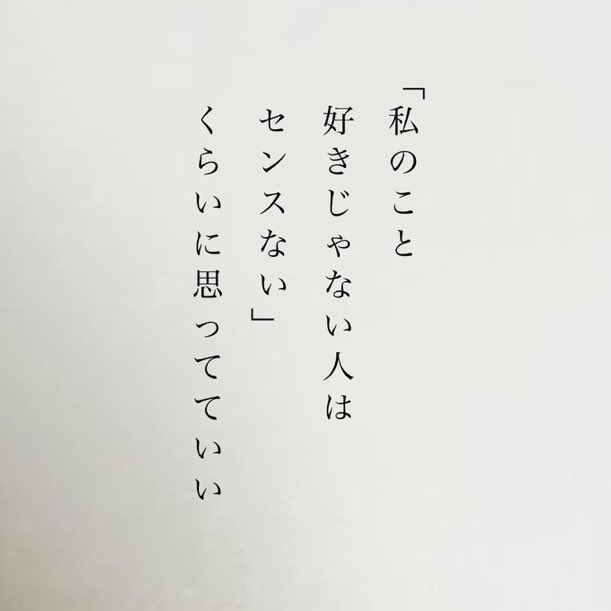 「私のこと
好きじゃない人は
センスない」
くらいに思ってていい